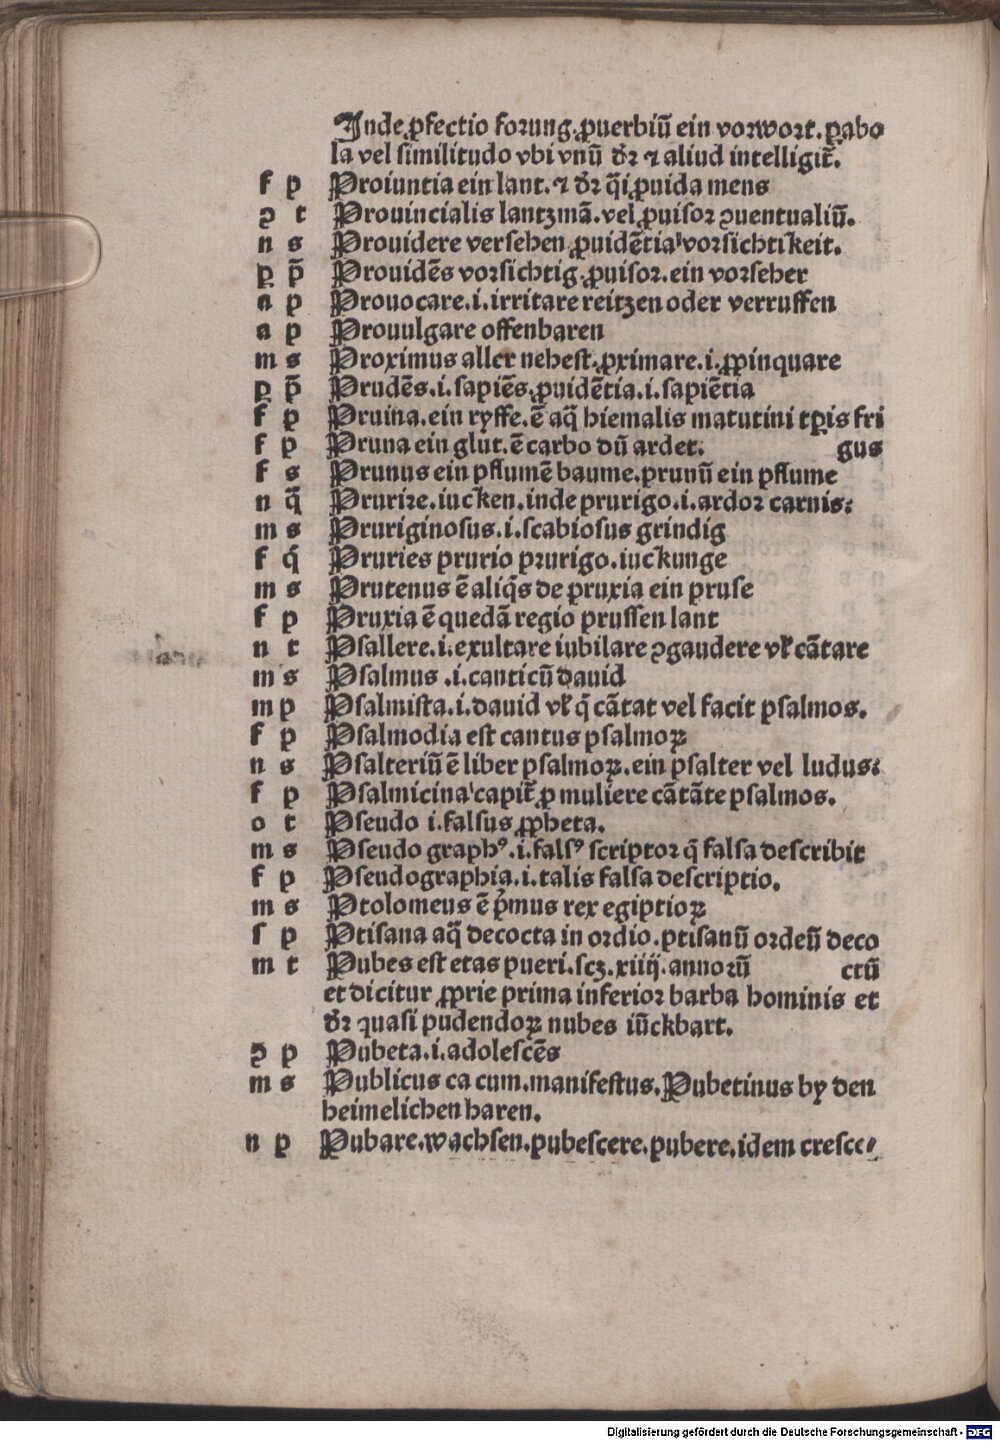 Inde ꝓfectio forung. ꝓuerbiū ein vorwort. ꝑabo
la vel similitudo vbi vnū d̄r ⁊ aliud intelligit̄.
f p Prouintia ein lant. ⁊ d̄r q̄i ꝓuida mens
ꝯ t Prouincialis lantzmā. vel ꝓuisor ꝯuentualiū.
n s Prouidere versehen ꝓuidētia vorsichtikeit.
ꝑ p̄ Prouidēs vorsichtig. ꝓuisor. ein vorseher
a p Prouocare .i. irritare reitzen oder verruffen
a p Prouulgare offenbaren
m s Proximus aller nehest. ꝓximare .i. ꝓpinquare
ꝑ p̄ Prudēs .i. sapiēs. ꝓuidētia .i. sapiētia
f p Pruina. ein ryffe. ē aq̄ hiemalis matutini tꝑis fri
f p Pruna ein glut. ē carbo dū ardet. gus
f s Prunus ein pflumē baume. prunū ein pflume
n q̄ Prurire. iucken. inde prurigo .i. ardor carnis.
m s Pruriginosus .i. scabiosus grindig
f q̄ Pruries prurio prurigo. iuckunge
m s Prutenus ē aliq̄s de pruxia ein pruse
f p Pruxia ē quedā regio prussen lant
n t Psallere .i. exultare iubilare ꝯgaudere vl̓ cātare
m s Psalmus .i. canticū dauid
m p Psalmista .i. dauid vl̓ q̄ cātat vel facit psalmos.
f p Psalmodia est cantus psalmoꝝ
n s Psalteriū ē liber psalmoꝝ. ein psalter vel ludus.
f p Psalmicina capit̄ ꝓ muliere cātāte psalmos.
o t Pseudo .i. falsus ꝓpheta.
m s Pseudo graphꝰ .i. falsꝰ scriptor q̄ falsa describit
f p Pseudographia .i. talis falsa descriptio.
m s Ptolomeus ē p̓mus rex egiptioꝝ
f p Ptisana aq̄ decocta in ordio. ptisanū ordeū deco
m t Pubes est etas pueri. scꝫ. xiiij. annorū ctū
et dicitur ꝓprie prima inferior barba hominis et
d̄r quasi pudendoꝝ nubes iūckbart.
ꝯ p Pubeta .i. adolescēs
m s Publicus ca cum. manifestus. Pubetinus by den
heimelichen haren.
n p Pubare. wachsen. pubescere. pubere. idem cresce
Digitalisierung gefördert durch die Deutsche Forschungsgemeinschaft - DFG